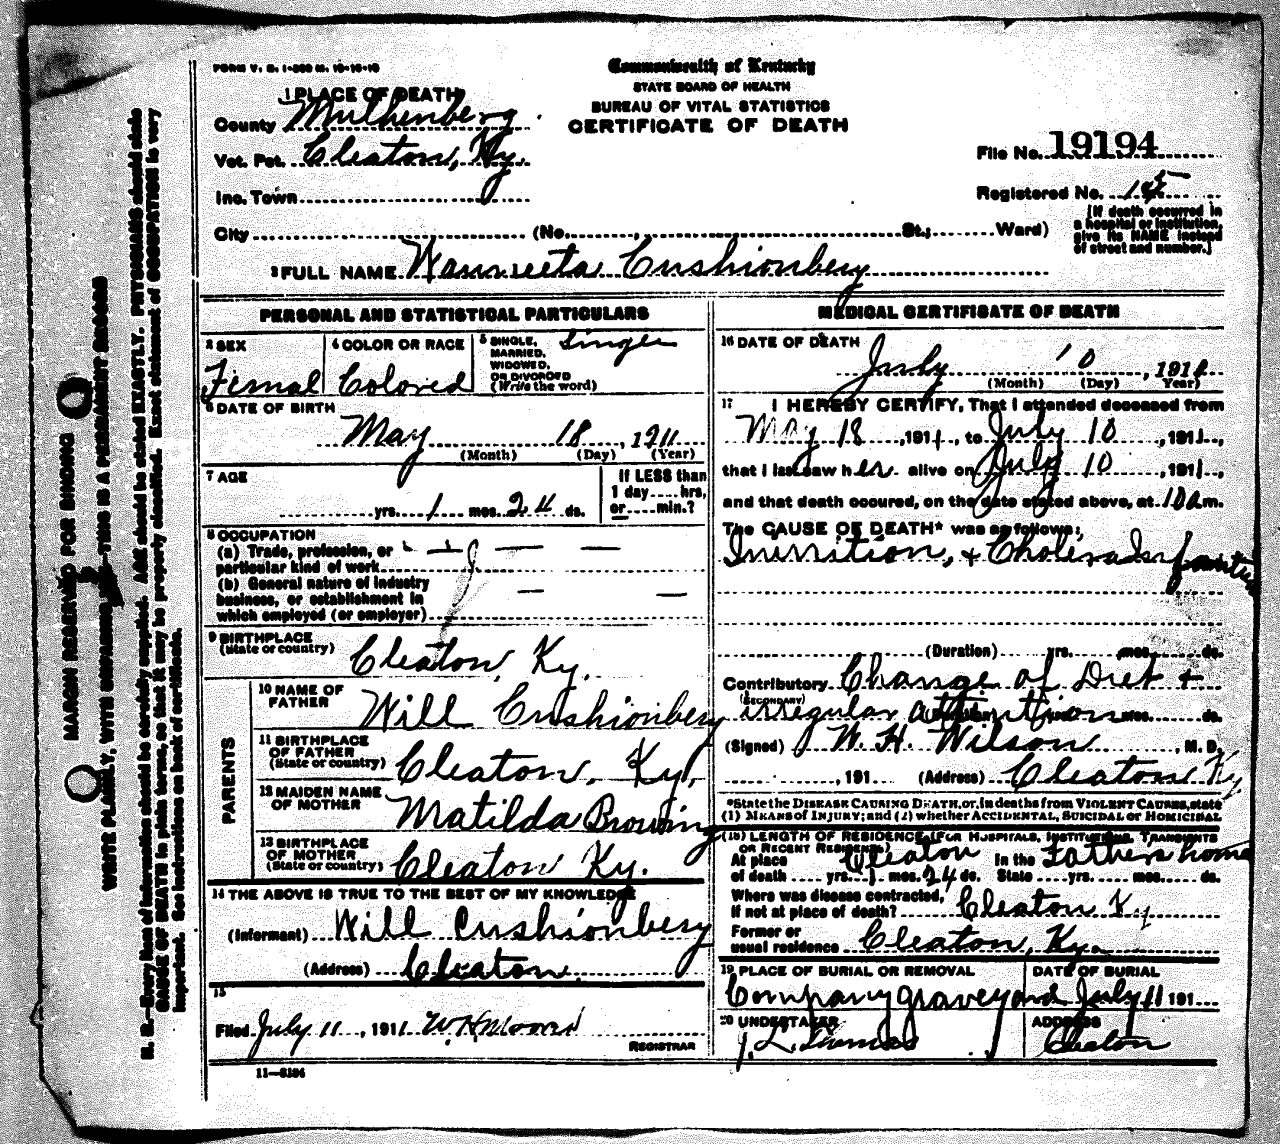 FORM V. S. 1-200 M. 10-10-10
Commonwealth of Kentucky
STATE BOARD OF HEALTH
BUREAU OF VITAL STATISTICS
CERTIFICATE OF DEATH
1 PLACE OF DEATH
County Muhlenberg
Vot. Pct. Cleaton, Ky.
Inc. Town
City (No. St.; Ward)
File No. 19194
Registered No.
[If death occurred in
a hospital or institution,
give its NAME instead
of street and number.]
2 FULL NAME Wanneeta Cushionbery
PERSONAL AND STATISTICAL PARTICULARS
3 SEX
Femal
4 COLOR OR RACE
Colored
5 SINGLE,
MARRIED,
WIDOWED,
OR DIVORCED
(Write the word)
Single
6 DATE OF BIRTH
May 18, 1911
(Month) (Day) (Year)
7 AGE
yrs. 1 mos. 24 ds.
If LESS than
1 day....hrs,
or....min.?
8 OCCUPATION
(a) Trade, profession, or
particular kind of work
(b) General nature of industry
business, or establishment in
which employed (or employer)
9 BIRTHPLACE
(State or country)
Cleaton, Ky.
PARENTS
10 NAME OF
FATHER
Will Cushionbery
11 BIRTHPLACE
OF FATHER
(State or country)
Cleaton, Ky.
12 MAIDEN NAME
OF MOTHER
Matilda Browning
13 BIRTHPLACE
OF MOTHER
(State or country)
Cleaton Ky.
14 THE ABOVE IS TRUE TO THE BEST OF MY KNOWLEDGE
(Informant) Will Cushionbery
(Address) Cleaton
15
Filed July 11, 1911 W.H. Moore
REGISTRAR
11—6184
MEDICAL CERTIFICATE OF DEATH
16 DATE OF DEATH
July 10, 1911
(Month) (Day) Year)
17 I HEREBY CERTIFY, That I attended deceased from
May 18, 1911, to July 10, 1911,
that I last saw her alive on July 10, 1911,
and that death occured, on the date stated above, at 10 a m.
The CAUSE OF DEATH* was as follows:
Innrition, & Cholera Infantum
(Duration) yrs. mos. ds.
Contributory Change of Diet &
(SECONDARY)
irregular attention mos. ds.
(Signed) W. H. Wilson, M. D.
, 191 (Address) Cleaton Ky
*State the DISEASE CAUSING DEATH, or, in deaths from VIOLENT CAUSES, state
(1) MEANS of INJURY; and (2) whether ACCIDENTAL, SUICIDAL or HOMICIDAL
(18) LENGTH OF RESIDENCE (FOR HOSPITALS, INSTITUTIONS, TRANSIENTS
OR RECENT RESIDENTS)
At place Cleaton In the Fathers home
of death yrs. 1 mos. 24 ds. State yrs. mos. ds.
Where was disease contracted,
if not at place of death? Cleaton Ky
Former or
usual residence Cleaton, Ky.
19 PLACE OF BURIAL OR REMOVAL
Company graveyard
DATE OF BURIAL
July 11 191
20 UNDERTAKER
ADDRESS
Cleaton
MARGIN RESERVED FOR BINDING
WRITE PLAINLY, WITH UNFADING INK—THIS IS A PERMANENT RECORD
N. B.—Every item of information should be carefully supplied. AGE should be stated EXACTLY. PHYSICIANS should state
CAUSE OF DEATH in plain terms, so that it may be properly classified. Exact statement of OCCUPATION is very
important. See instructions on back of certificate.